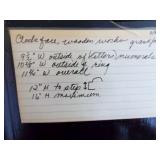 Clock face, wooden works grandf
9 3/8" W outside of (letters) numerals
10 3/8" W outside of ring
11 3/4" W overall
12" H to step
16" H maximum